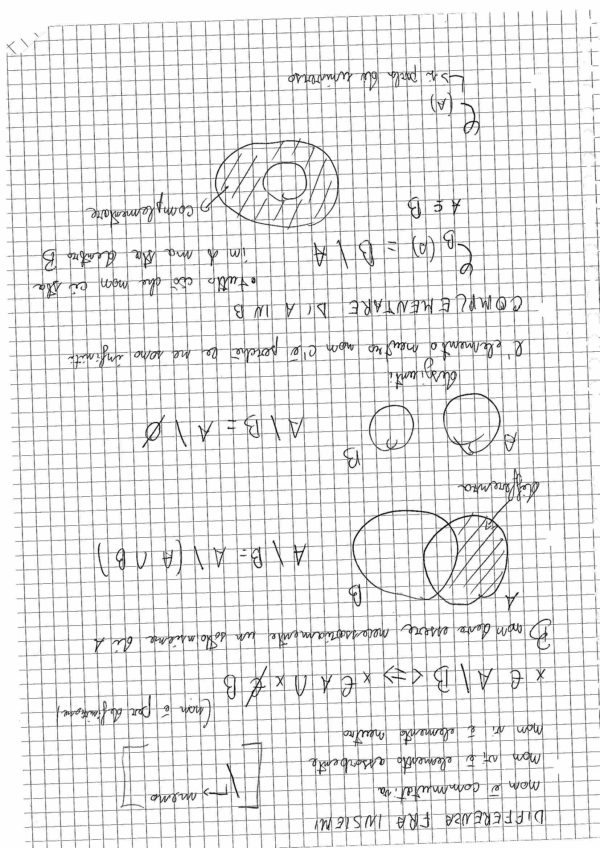 DIFFERENZA FRA INSIEMI
non è commutativa
non vi è elemento assorbente
non vi è elemento neutro
[ \ → meno ]
(non è per definizione)
x ∈ A \ B <=> x ∈ A ∩ x ∉ B
B non deve essere necessariamente un sottoinsieme di A
A
B
A \ B = A \ (A ∩ B)
differenza
A
B
A \ B = A \ ∅
disgiunti
l'elemento neutro non c'è perché ce ne sono infiniti
COMPLEMENTARE DI A IN B
C B (A) = B \ A
• tutto ciò che non ci sta
in A ma sta dentro B
A ⊆ B
complementare
C (A)
↳ si parla di universo